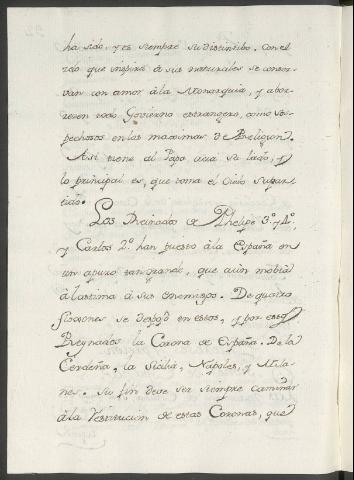 ha sido, y es siempre su distintibo. Con el
zelo que inspira à sus naturales se conser-
van con amor à la Monarquia, y abor-
recen todo Govierno estrangero, como sos-
pechosos en las maximas de Religion.
Asi tiene al Papa acia su lado, y
lo principal es, que toma el Cielo su par-
tido.
Los Reinados de Phelipe 3.º y 4.º,
y Carlos 2.º han puesto à la España en
un apuro tan grande, que aùn mobia
à lastima à sus enemigos. De quatro
florones se despojó en estos, y por estos
Reynados la Corona de España. De la
Cerdeña, la Sicilia, Napoles, y Mila-
nes. Su fin deve ser siempre caminar
à la restitucion de estas Coronas, que